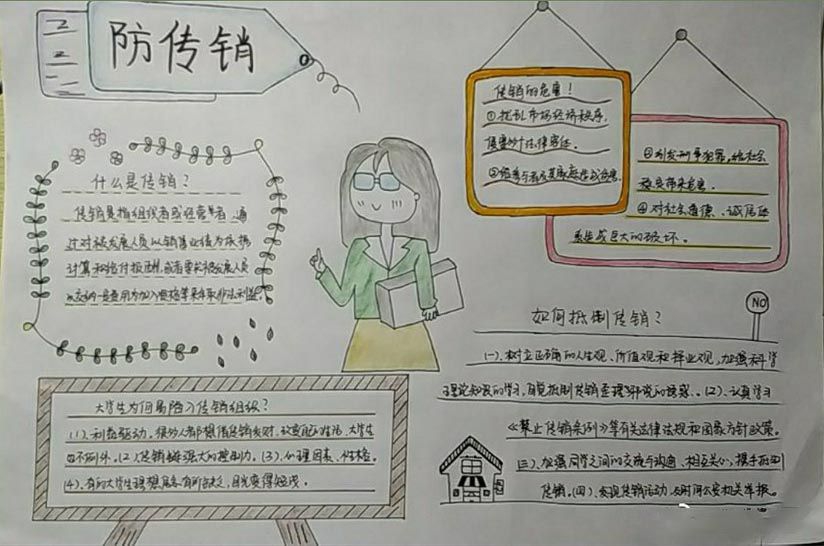 防传销
什么是传销?
传销是指组织者或经营者,通
过对被发展人员以销售业绩为依据
计算和给付报酬,或者要求被发展人员
以交纳一定费用为加入资格等来牟取非法利益。
传销的危害!
①扰乱市场经济秩序,
侵害
③引发刑事犯罪,给社会
稳定带来危害。
④对社会道德、诚信体
系造成巨大的破坏。
NO
如何抵制传销?
(一)、树立正确的人生观、价值观和择业观,加强科学
理论知识的学习,自觉抵制传销歪理邪说的诱惑。(2)、认真学习
《禁止传销条例》等有关法律法规和国家方针政策。
(三)、加强同学之间的交流与沟通、相互关心,携手抵制
传销。(四)、发现传销活动,及时向公安机关举报。
大学生为何易陷入传销组织?
(1)、利益驱动。很多人都想借传销发财,改变自己的生活,大学生
也不例外。(2)传销强大的控制力。(3)、心理因素、性格。
(4)、有的大学生理想信念有所缺乏,目光变得短浅。